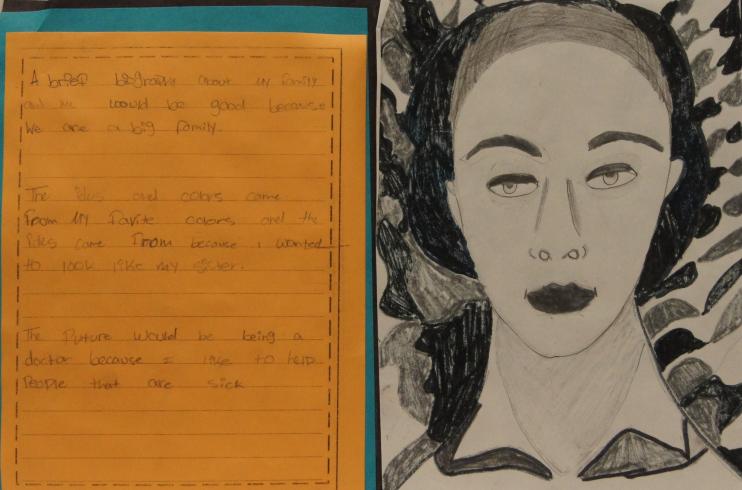 A brief biography about my family
and me would be good because
We are a big family.
The ides and colors came
From my favite colors and the
ides came From because i wanted
to look like my sister.
The Future would be being a
doctor because I like to help
People that are sick